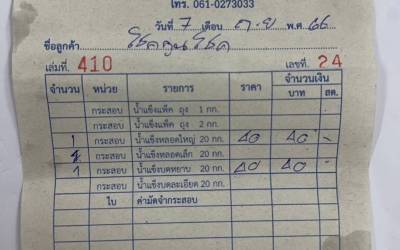 โทร. 061-0273033
วันที่ 7 เดือน ก.ย พ.ศ 66
ชื่อลูกค้า
เล่มที่. 410 เลขที่. 24
จำนวน หน่วย รายการ ราคา จำนวนเงิน
บาท สต.
กระสอบ น้ำแข็งแพ็ค ถุง 1 กก.
กระสอบ น้ำแข็งแพ็ค ถุง 2 กก.
1 กระสอบ น้ำแข็งหลอดใหญ่ 20 กก. 40 40 -
กระสอบ น้ำแข็งหลอดเล็ก 20 กก.
1 กระสอบ น้ำแข็งบดหยาบ 20 กก. 40 40 -
กระสอบ น้ำแข็งบดละเอียด 20 กก.
ใบ ค่ามัดจำกระสอบ